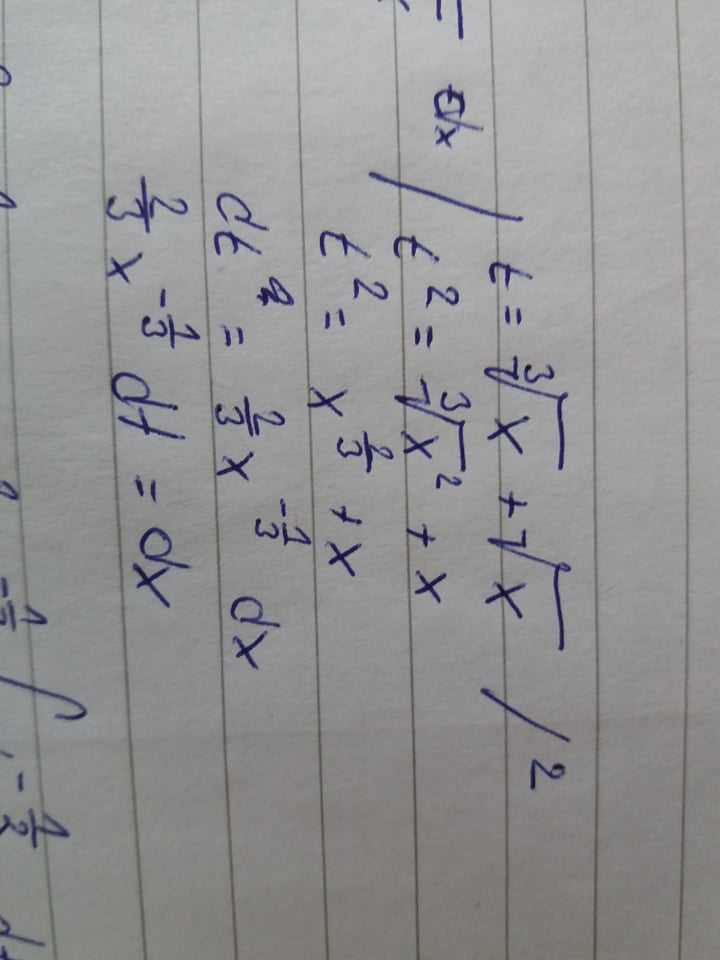 = dx / t = ∛x + √x /²
t² = ∛x² + x
t² = x^(2/3) + x
dt = 2/3 x^(-1/3) dx
2/3 x^(-1/3) dt = dx